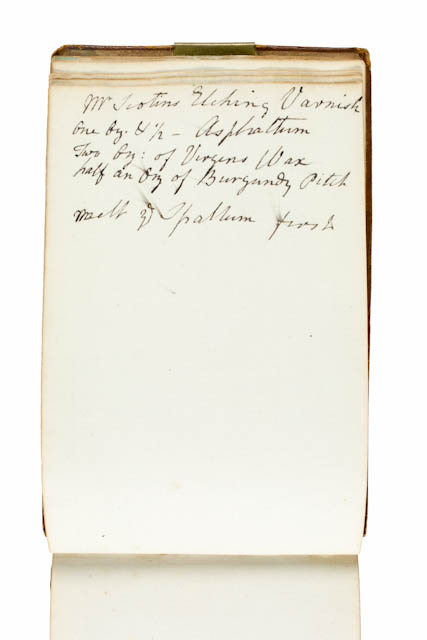 Mr Scotins Etching Varnish
One Oz. & 1/2 - Asphaltum
Two Oz: of Virgens Wax
half an Oz of Burgundy Pitch
melt ye Spaltum first